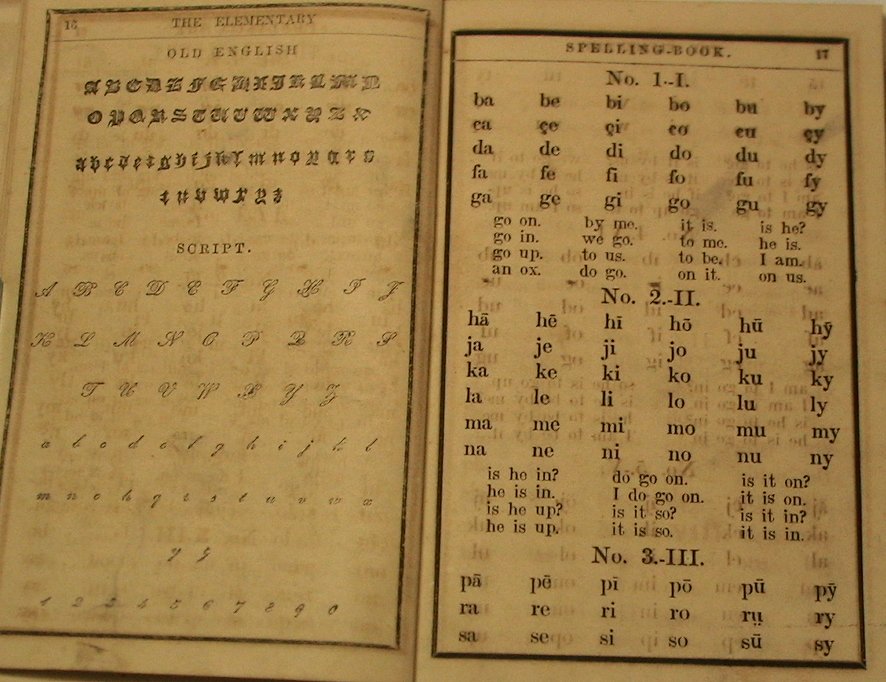 16 THE ELEMENTARY
OLD ENGLISH
A B C D E F G H I J K L M N
O P Q R S T U V W X Y Z &
a b c d e f g h i j k l m n o p q r s
t u v w x y z
SCRIPT.
A B C D E F G H I J
K L M N O P Q R S
T U V W X Y Z
a b c d e f g h i j k l
m n o p q r s t u v w x
y z
1 2 3 4 5 6 7 8 9 0
SPELLING-BOOK. 17
No. 1.-I.
ba be bi bo bu by
ca çe çi co cu çy
da de di do du dy
fa fe fi fo fu fy
ga ge gi go gu gy
go on. by me. it is. is he?
go in. we go. to me. he is.
go up. to us. to be. I am.
an ox. do go. on it. on us.
No. 2.-II.
hā hē hī hō hū hȳ
ja je ji jo ju jy
ka ke ki ko ku ky
la le li lo lu ly
ma me mi mo mu my
na ne ni no nu ny
is he in? do go on. is it on?
he is in. I do go on. it is on.
is he up? is it so? is it in?
he is up. it is so. it is in.
No. 3.-III.
pā pē pī pō pū pȳ
ra re ri ro rṳ ry
sa se si so sū sy